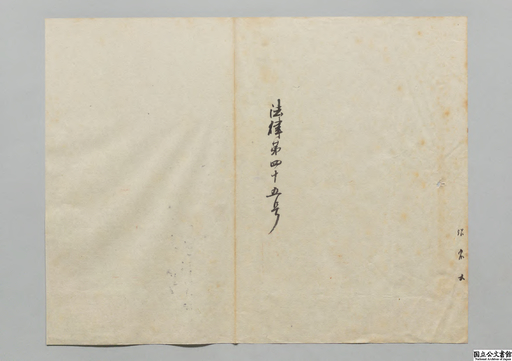 法律第四十五号
国立公文書館
National Archives of Japan